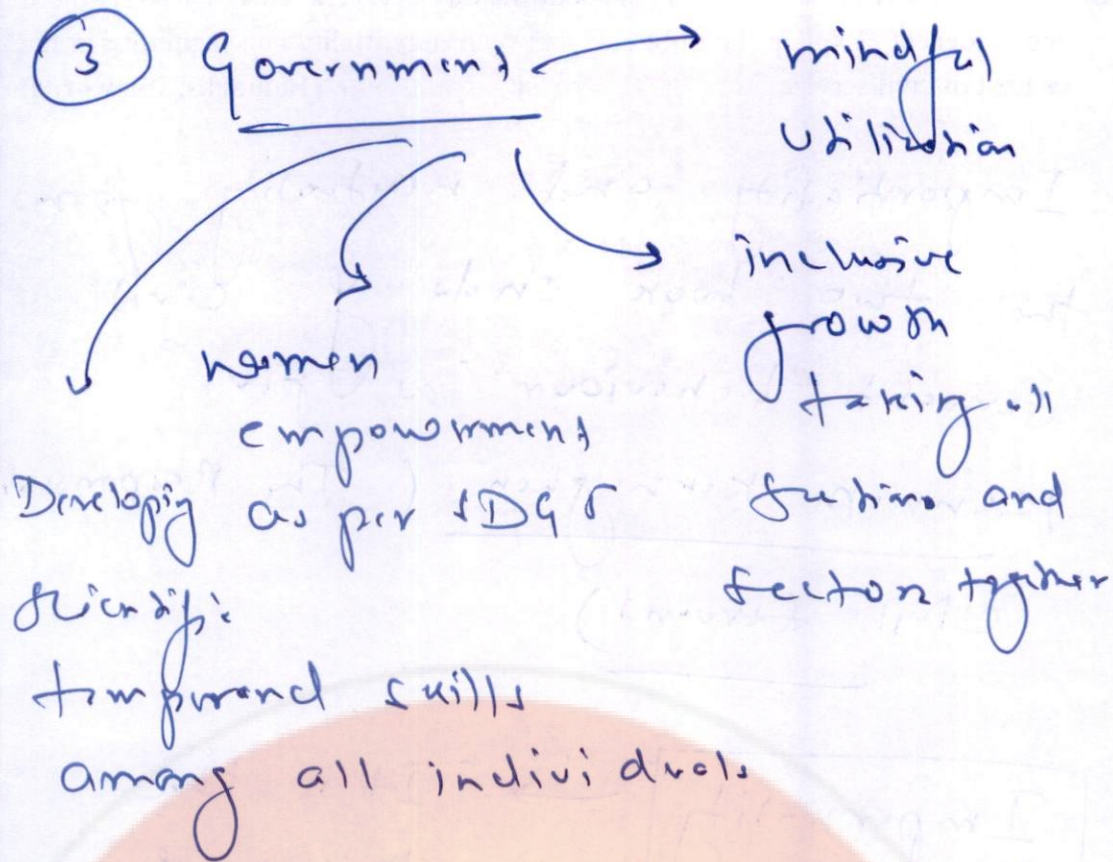 ③ Government
mindful
Utilization
inclusive
growth
taking all
sections and
sectors together
women
empowerment
as per SDG 5
Developing
scientific
temper and skills
among all individuals